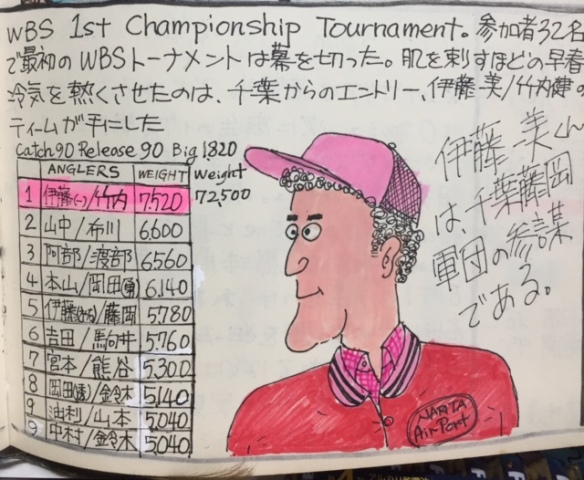 WBS 1st Championship Tournament。参加者32名
で最初のWBSトーナメントは幕を切った。肌を刺すほどの早春
冷気を熱くさせたのは、千葉からのエントリー、伊藤一美/竹内健の
ティームが手にした
Catch90 Release90 Big1,820
Weight
72,500
ANGLERS WEIGHT
1 伊藤(一)/竹内 7,520
2 山中/布川 6,600
3 阿部/渡部 6,560
4 本山/岡田 6,140
5 伊藤/藤岡 5,780
6 吉田/馬向井 5,760
7 宮本/熊谷 5,300
8 岡田/鈴木 5,140
9 油利/山本 5,040
9 中村/鈴木 5,040
伊藤一美くん
は、千葉藤岡
軍団の参謀
である。
NARITA
AirPort